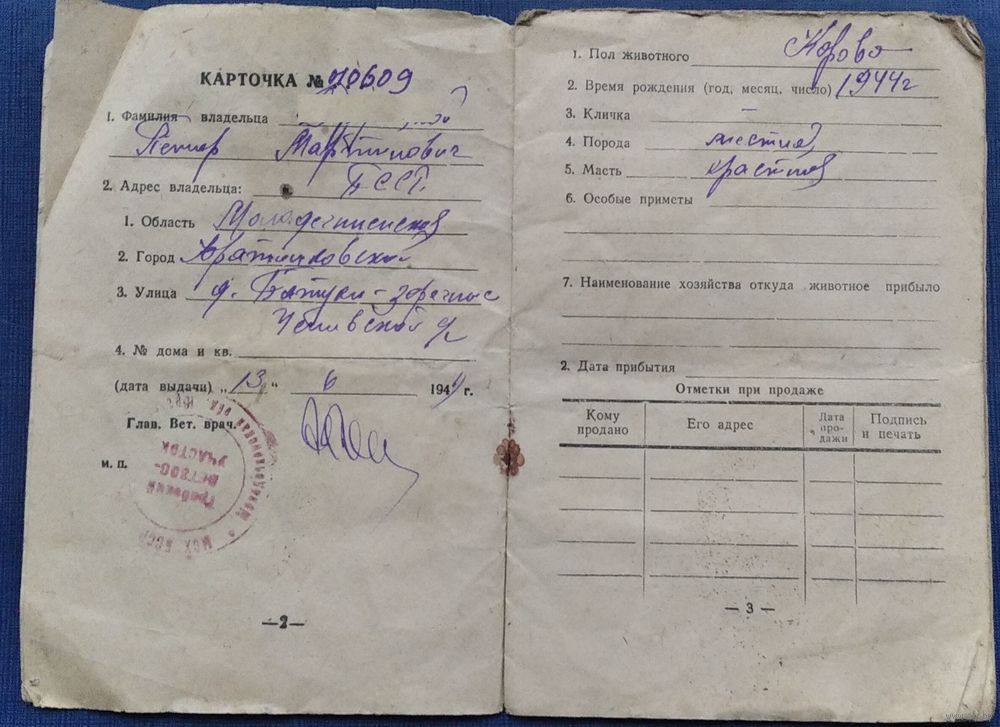 КАРТОЧКА № 70609
1. Фамилия владельца
Петр Мартинович
2. Адрес владельца: БССР
1. Область Молодечненская
2. Город
3. Улица д.
4. № дома и кв.
(дата выдачи) „ 13 " 6 194 г.
Глав. Вет. врач.
м. п.
УЧАСТОК
МСХ БССР
—2—
1. Пол животного Корова
2. Время рождения (год, месяц, число) 1944г
3. Кличка —
4. Порода местная
5. Масть красная
6. Особые приметы
7. Наименование хозяйства откуда животное прибыло
2. Дата прибытия
Отметки при продаже
Кому продано
Его адрес
Дата про-
дажи
Подпись
и печать
— 3 —